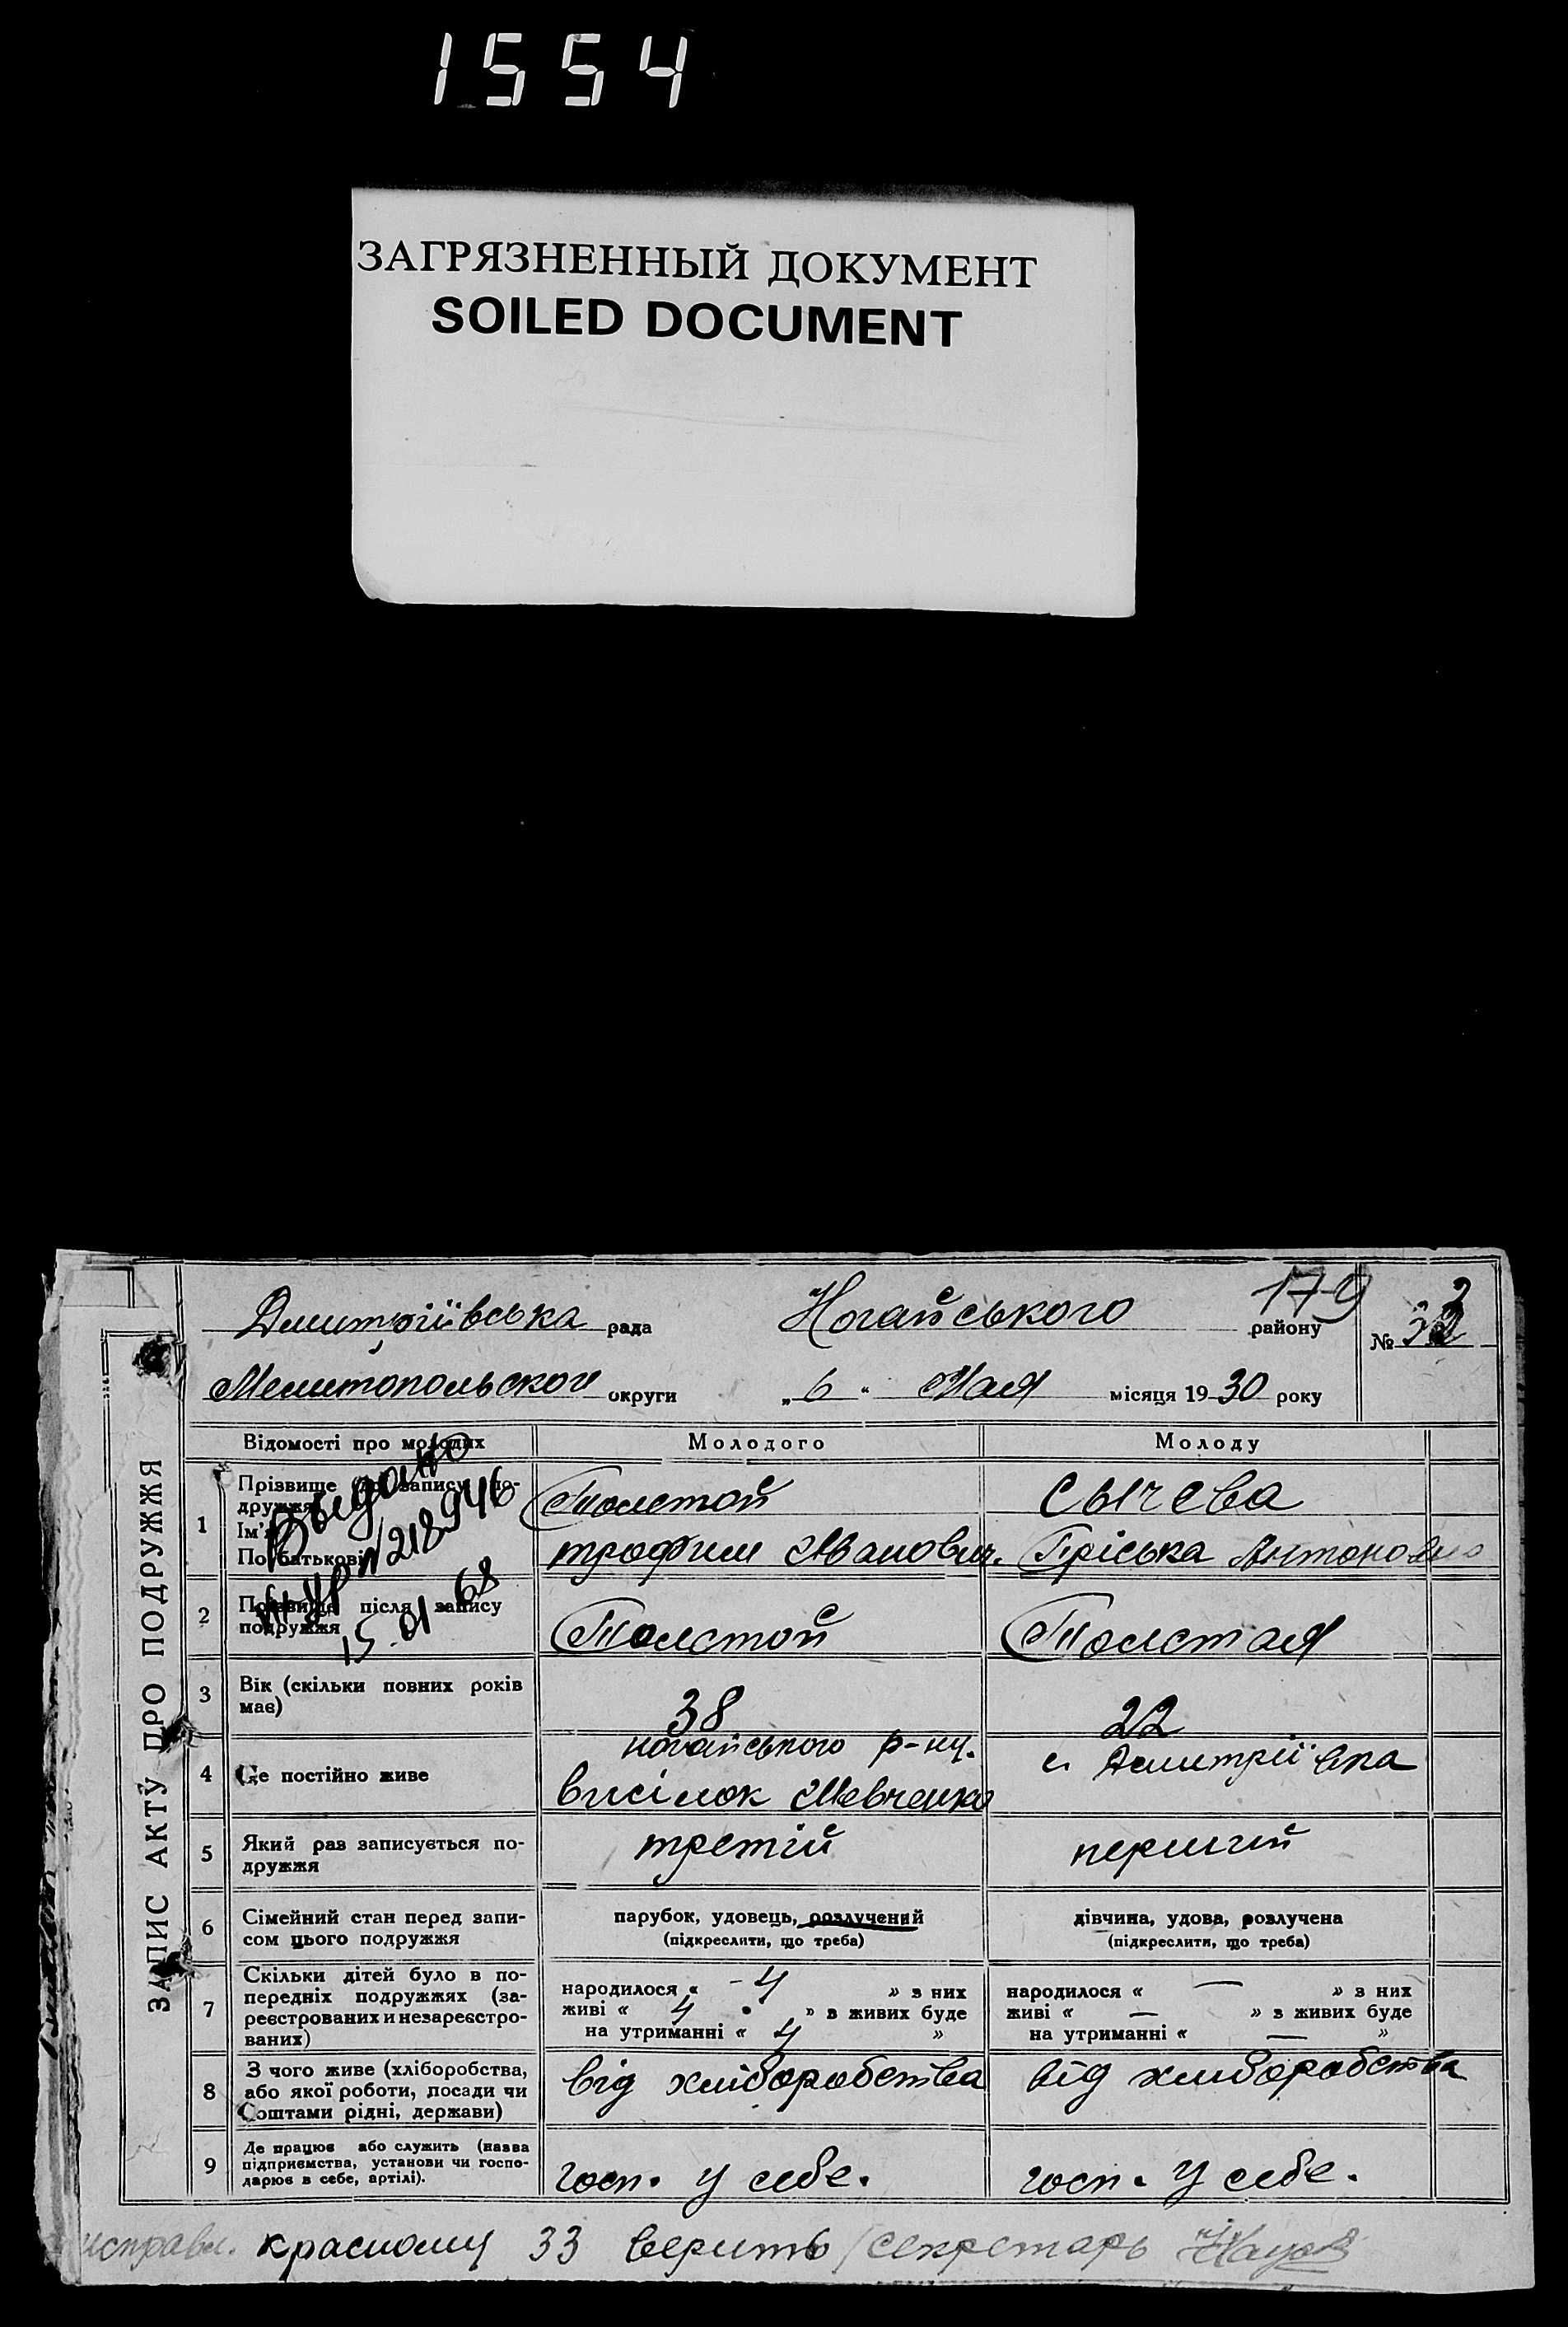 1554
ЗАГРЯЗНЕННЫЙ ДОКУМЕНТ
SOILED DOCUMENT
ЗАПИС АКТУ ПРО ПОДРУЖЖЯ
Дмитріївська рада Ногайського району 179 №
Мелитопольської округи „6“ Мая місяця 1930 року
Відомості про молодих Молодого Молоду
1 Прізвище до запису подружжя Ім'я По батькові
Толстой Сычева
трофим Иванович. Пріська Антоновна
Выдано
№ 218946
15.01.68
2 Прізвище після запису подружжя Толстой Толстая
3 Вік (скільки повних років має) 38 22
4 Де постійно живе ногайського р-ну. висілок Шевченко с. Дмитріївка
5 Який раз записується подружжя третій перший
6 Сімейний стан перед записом цього подружжя парубок, удовець, розлучений (підкреслити, що треба) дівчина, удова, розлучена (підкреслити, що треба)
7 Скільки дітей було в попередніх подружжях (зареєстрованих и незареєстрованих)
народилося « - 4 » з них народилося « — » з них
живі « 4 » з живих буде живі « — » з живих буде
на утриманні « 4 » на утриманні « — »
8 З чого живе (хліборобства, або якої роботи, посади чи коштами рідні, держави) від хліборобства від хліборобства
9 Де працює або служить (назва підприємства, установи чи господарює в себе, артілі). госп. у себе. госп. у себе.
исправл. красному 33 верить / секретарь